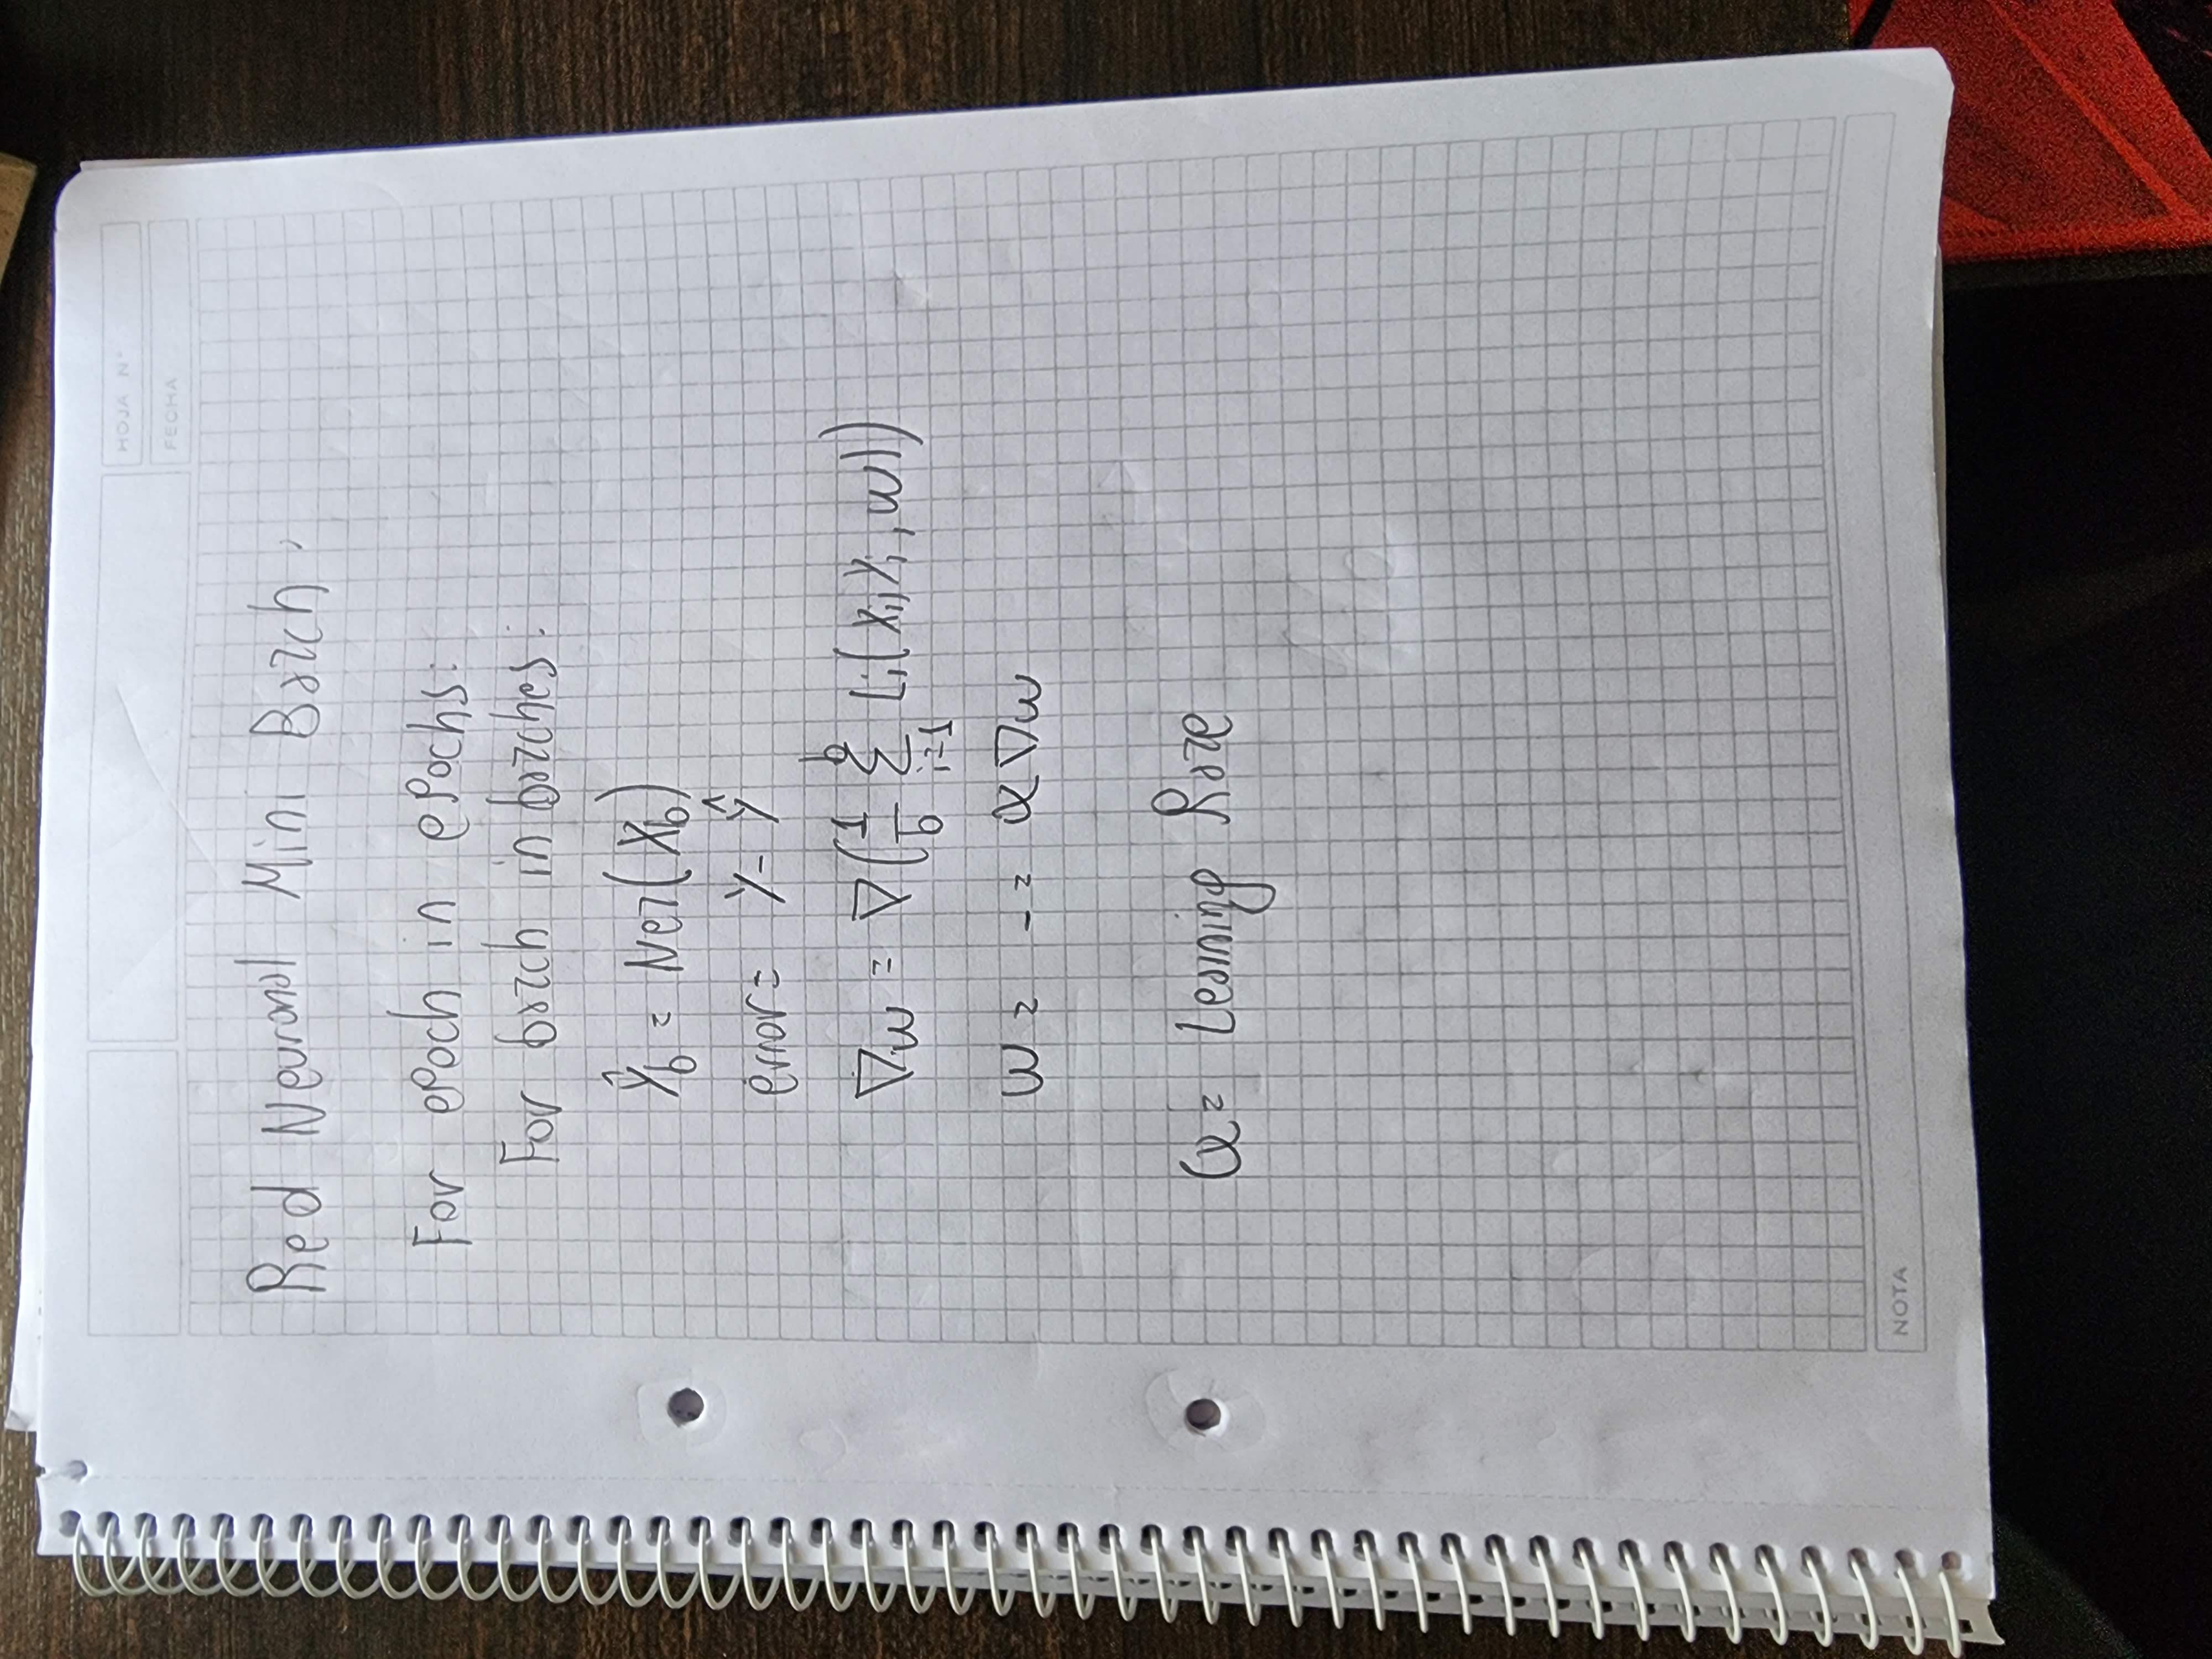 HOJA N°
FECHA
Red Neuronal Mini Batch:
For epoch in epochs:
For batch in batches:
ŷ_b = Net(X_b)
error = y - ŷ
∇w = ∇(1/b Σ_{i=1}^{b} L_i(x_i, y_i, w))
w = -= α ∇w
α = Learning Rate
NOTA